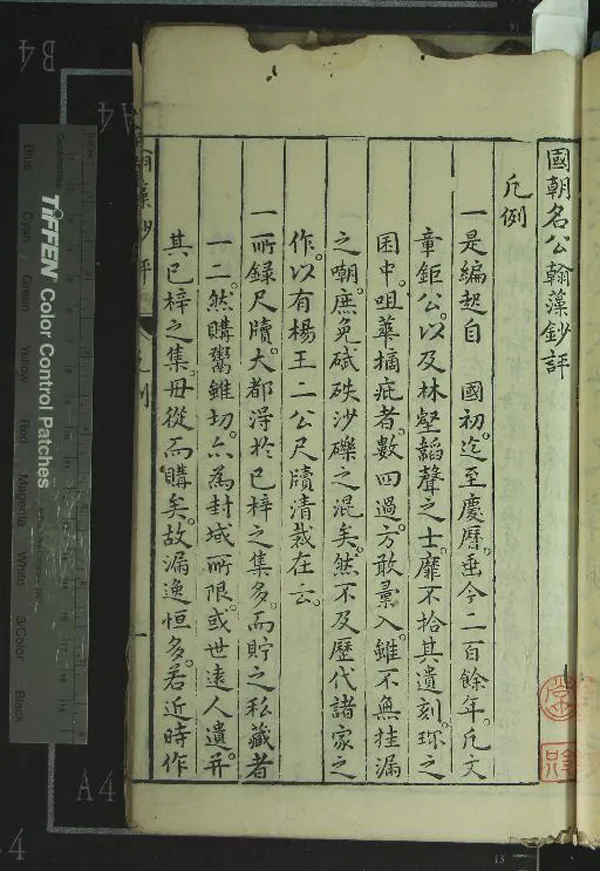 國朝名公翰藻鈔評
凡例
一是編起自　國初。迄至慶曆。垂今二百餘年。凡文
章鉅公。以及林壑韜聲之士。靡不拾其遺刻。珎之
囷中。咀華摘疵者。數四過。方敢彚入。雖不無挂漏
之嘲。庶免碔砆沙礫之混矣。然不及歷代諸家之
作。以有楊王二公尺牘清裁在云。
一所錄尺牘。大都淂於已梓之集多。而貯之私藏者
一二。然購鬻雖切。亦為封域所限。或世遠人遺。并
其已梓之集。毋從而購矣。故漏逸恒多。若近時作
翰藻鈔評
凡例
一
TIFFEN Color Control Patches
Blue
Cyan
Green
Yellow
Red
Magenta
White
3/Color
Black
B4
A4
A4
13